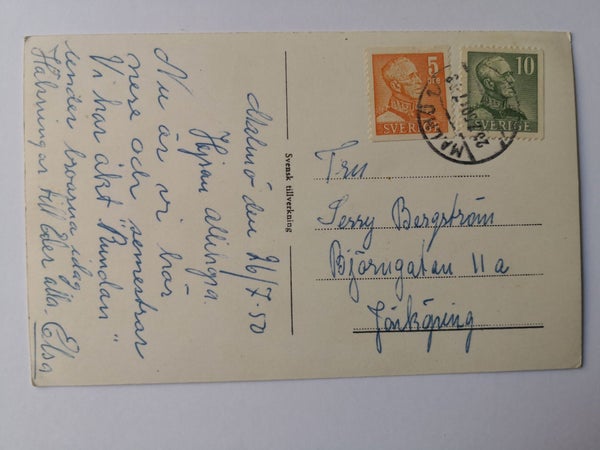 Malmö den 26/7.50
Hejsan Allihopa.
Nu är vi här
nere och semestrar
Vi har åkt "Rundan"
under broarna idag
Hälsningar till Eder alla. Elsa
Svensk tillverkning
5
öre
SVERIGE
10
SVERIGE
MALMÖ
Fru
Jerry Bergström
Björngatan 11 a
Jönköping